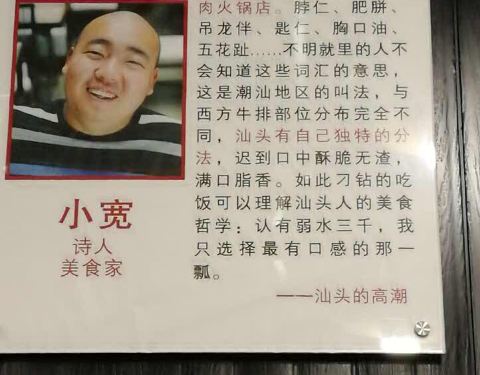 肉火锅店。脖仁、肥胼、
吊龙伴、匙仁、胸口油、
五花趾……不明就里的人不
会知道这些词汇的意思，
这是潮汕地区的叫法，与
西方牛排部位分布完全不
同，汕头有自己独特的分
法，迟到口中酥脆无渣，
满口脂香。如此刁钻的吃
饭可以理解汕头人的美食
哲学：认有弱水三千，我
只选择最有口感的那一
瓢。
——汕头的高潮
小宽
诗人
美食家